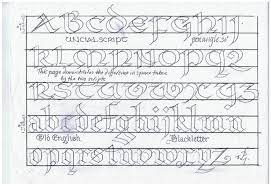 Abcdefghij
UNCIAL SCRIPT pen angle 30°
klmnopq
This page demonstrates the difference in space taken
by the two scripts
rstuvwxyz
abcdefghijklmn
Old English Blackletter
opqrstuvwxyz